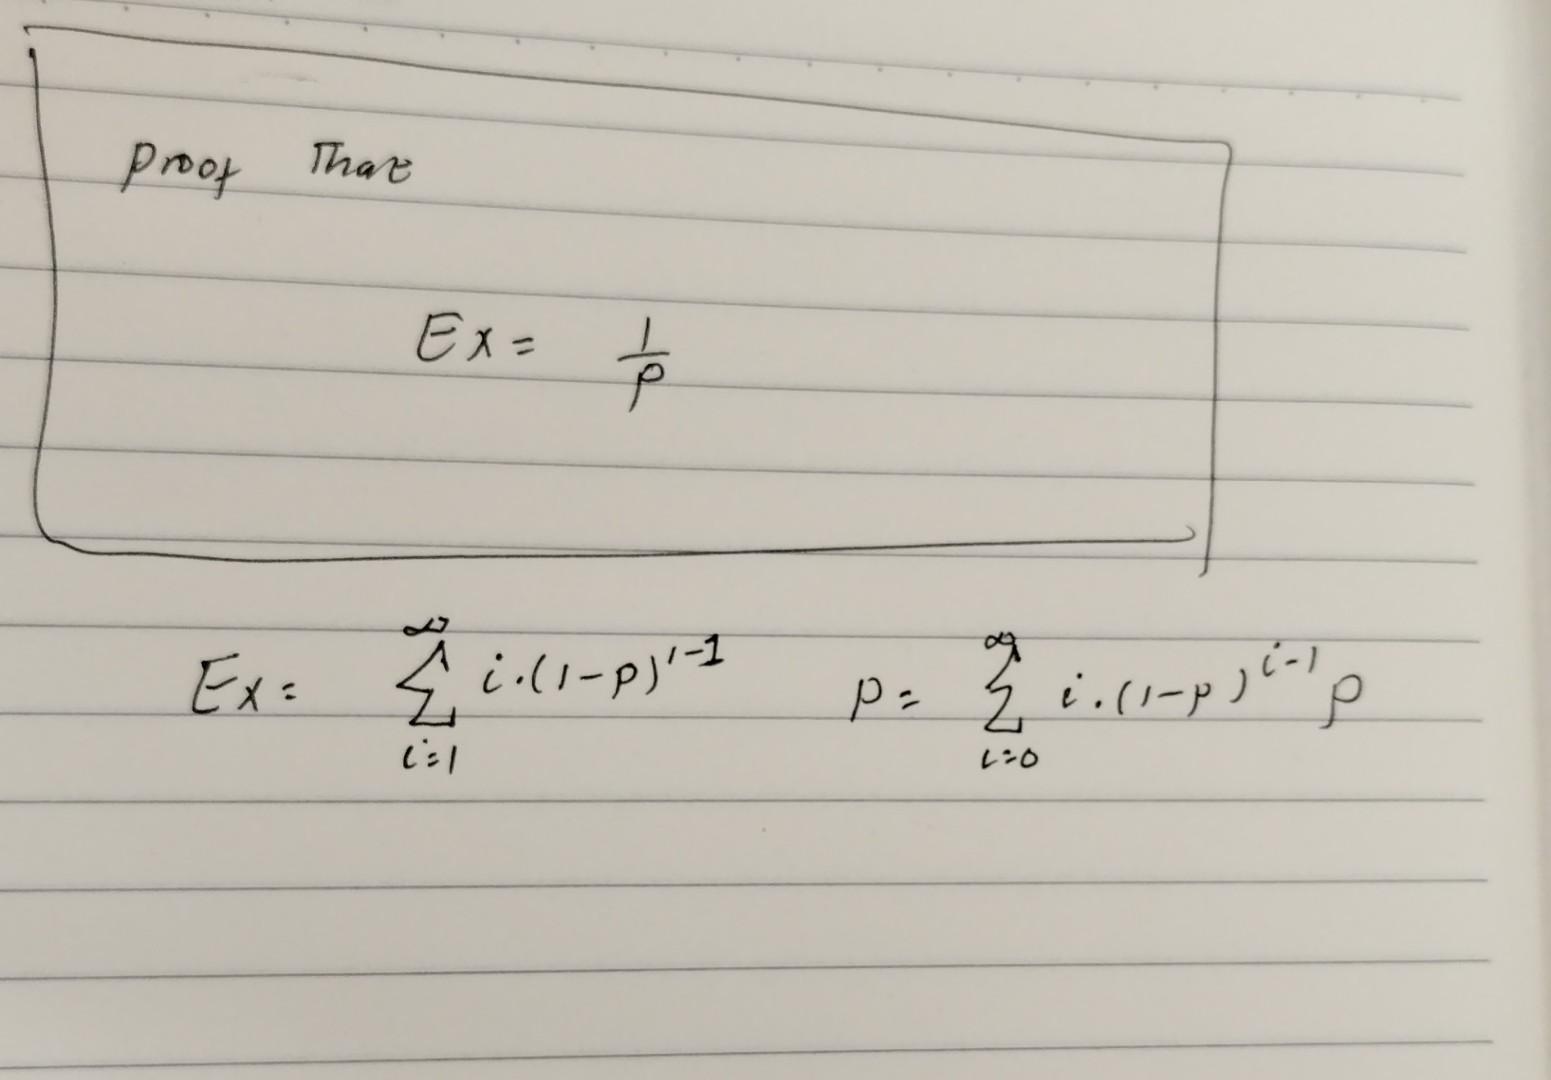 proof That
Ex = 1/p
Ex = ∞∑i=1 i.(1-p)^i-1 p = ∞∑i=0 i.(1-p)^i-1 p